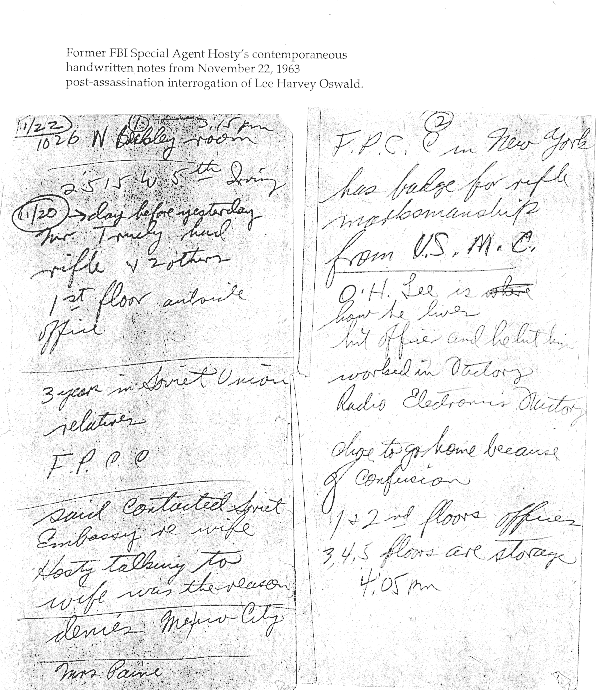 Former FBI Special Agent Hosty's contemporaneous
handwritten notes from November 22, 1963
post-assassination interrogation of Lee Harvey Oswald.
11/22 ① 3:15 pm
1026 N Beckley room
2515 W 5th Irving
11/20 → day before yesterday
Mr. Truly had
rifle & 2 others
1st floor outside
office
3 years in Soviet Union
relatives
F.P.C.C
said contacted Soviet
Embassy re wife
Hosty talking to
wife was the reason
denies Mexico City
Mrs. Paine
②
F.P.C.C in New York
has badge for rifle
marksmanship
from U.S.M.C.
O.H. Lee is
how he lives
hit officer and he hit him
worked in Factory
Radio Electronics Factory
chose to go home because
of confusion
1 & 2nd floors offices
3,4,5 floors are storage
4:05 pm